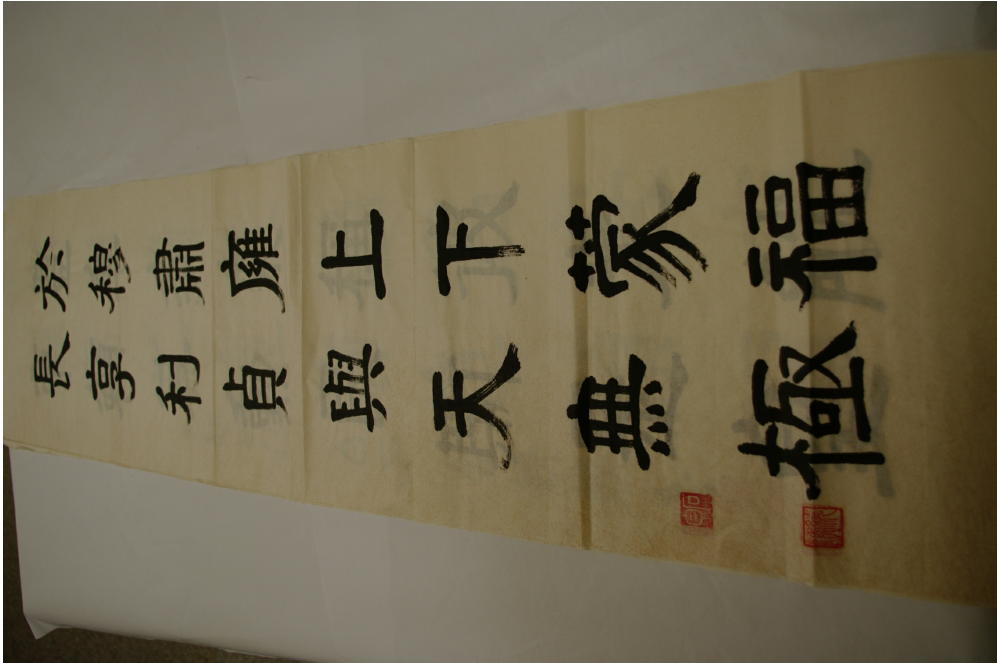 於穆肅廱上下蒙福
長享利貞與天無極